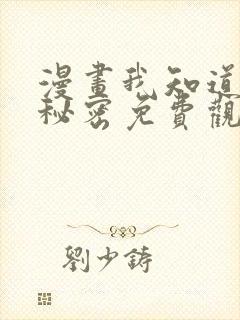 漫畫我知道
秘密免費觀
劉少鋳